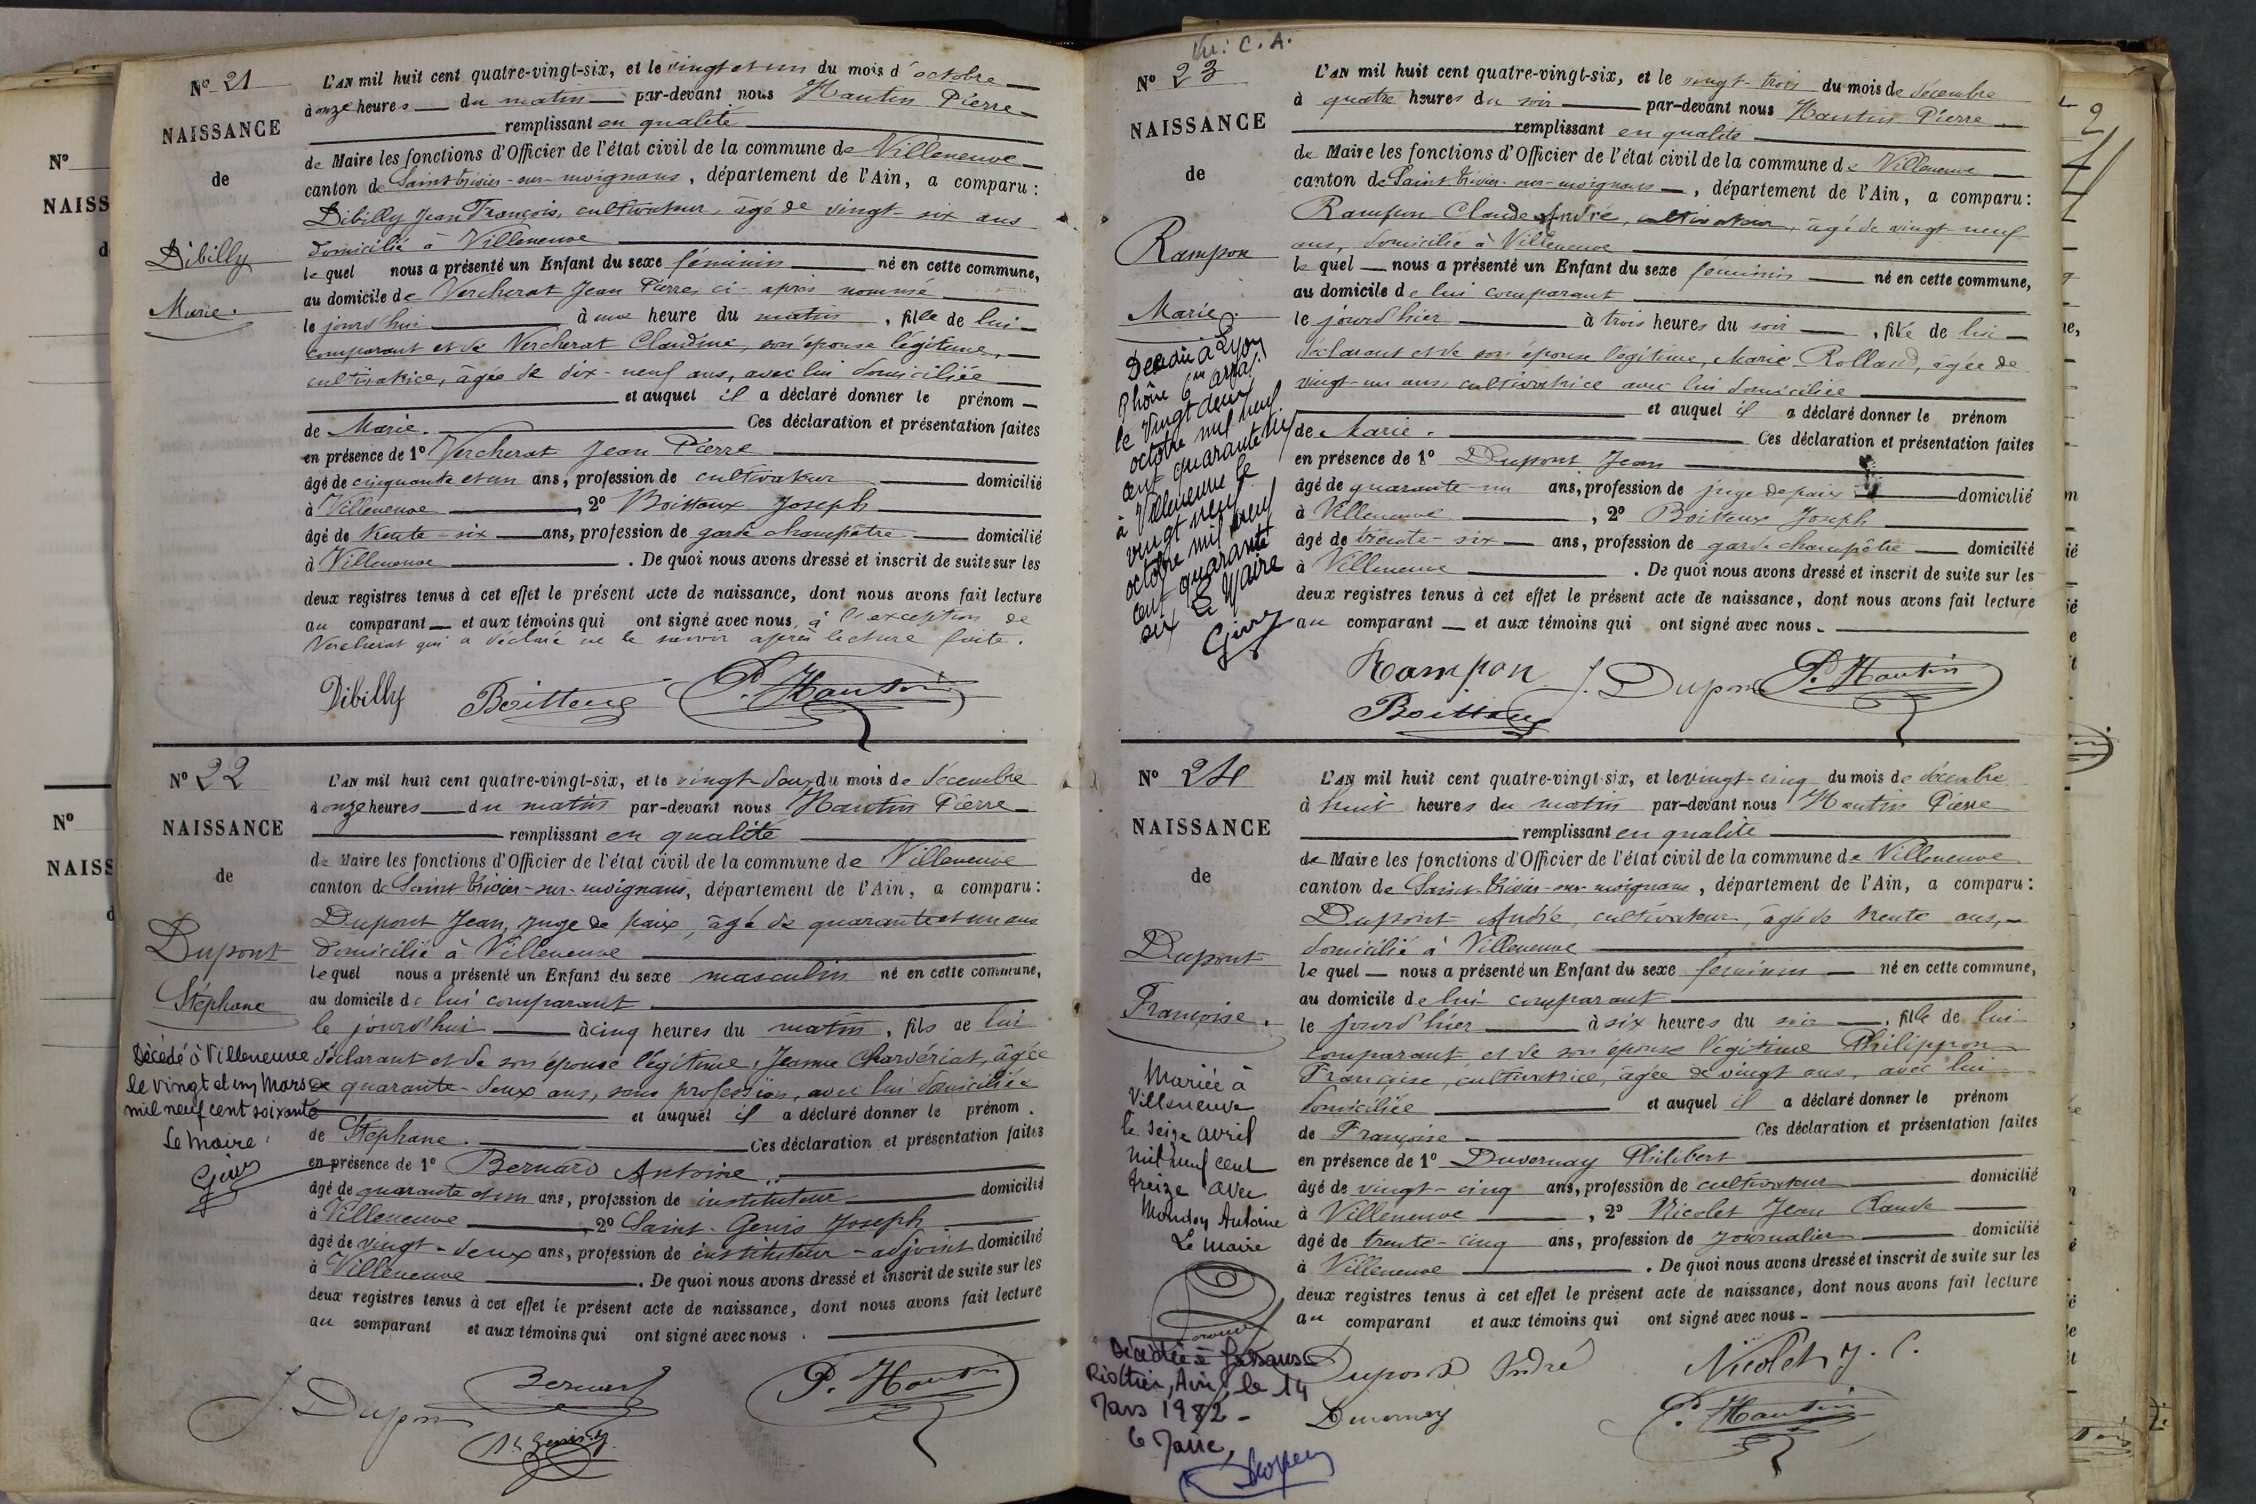 Nº 21
NAISSANCE
de
Dibilly
Marie.
L'AN mil huit cent quatre-vingt-six, et le vingt et un du mois d'octobre
à onze heures du matin par-devant nous Hautin Pierre
remplissant en qualité
de Maire les fonctions d'Officier de l'état civil de la commune de Villeneuve
canton de Saint-Trivier-sur-moignans, département de l'Ain, a comparu :
Dibilly Jean François, cultivateur, âgé de vingt-six ans
domicilié à Villeneuve
lequel nous a présenté un Enfant du sexe féminin né en cette commune,
au domicile de Vercherat Jean Pierre, ci-après nommé
le jourd'hui à une heure du matin, fille de lui
comparant et de Vercherat Claudine, son épouse légitime,
cultivatrice, âgée de dix-neuf ans, avec lui domiciliée
et auquel il a déclaré donner le prénom
de Marie. Ces déclaration et présentation faites
en présence de 1º Vercherat Jean Pierre
âgé de cinquante et un ans, profession de cultivateur domicilié
à Villeneuve, 2º Boitteux Joseph
âgé de trente-six ans, profession de garde champêtre domicilié
à Villeneuve. De quoi nous avons dressé et inscrit de suite sur les
deux registres tenus à cet effet le présent acte de naissance, dont nous avons fait lecture
au comparant et aux témoins qui ont signé avec nous, à l'exception de
Vercherat qui a déclaré ne le savoir après lecture faite.
Dibilly Boitteux P. Hautin
Nº 22
NAISSANCE
de
Dupont
Stéphane
Décédé à Villeneuve
le vingt et un Mars
mil neuf cent soixante
Le Maire :
L'AN mil huit cent quatre-vingt-six, et le vingt-deux du mois de décembre
à onze heures du matin par-devant nous Hautin Pierre
remplissant en qualité
de Maire les fonctions d'Officier de l'état civil de la commune de Villeneuve
canton de Saint Trivier-sur-moignans, département de l'Ain, a comparu :
Dupont Jean, juge de paix, âgé de quarante et un ans
domicilié à Villeneuve
lequel nous a présenté un Enfant du sexe masculin né en cette commune,
au domicile de lui comparant
le jourd'hui à cinq heures du matin, fils de lui
déclarant et de son épouse légitime, Jeanne Charvériat, âgée
de quarante-deux ans, sans profession, avec lui domiciliée
et auquel il a déclaré donner le prénom
de Stéphane. Ces déclaration et présentation faites
en présence de 1º Bernard Antoine
âgé de quarante et un ans, profession de instituteur domicilié
à Villeneuve, 2º Saint-Genis Joseph
âgé de vingt-deux ans, profession de instituteur-adjoint domicilié
à Villeneuve. De quoi nous avons dressé et inscrit de suite sur les
deux registres tenus à cet effet le présent acte de naissance, dont nous avons fait lecture
au comparant et aux témoins qui ont signé avec nous.
J. Dupont Bernard P. Hautin
St Genis J
Vu : C. A.
Nº 23
NAISSANCE
de
Rampon
Marie.
Décédée à Lyon
Rhône 6me arrdt
le vingt deux
octobre mil neuf
cent quarante six
à Villeneuve le
vingt neuf
octobre mil neuf
cent quarante
six Le Maire
L'AN mil huit cent quatre-vingt-six, et le vingt-trois du mois de décembre
à quatre heures du soir par-devant nous Hautin Pierre
remplissant en qualité
de Maire les fonctions d'Officier de l'état civil de la commune de Villeneuve
canton de Saint Trivier-sur-moignans, département de l'Ain, a comparu :
Rampon Claude André, cultivateur, âgé de vingt-neuf
ans, domicilié à Villeneuve
lequel nous a présenté un Enfant du sexe féminin né en cette commune,
au domicile de lui comparant
le jourd'hier à trois heures du soir, fille de lui
déclarant et de son épouse légitime, Marie Rolland, âgée de
vingt-un ans, cultivatrice avec lui domiciliée
et auquel il a déclaré donner le prénom
de Marie. Ces déclaration et présentation faites
en présence de 1º Dupont Jean
âgé de quarante-un ans, profession de juge de paix domicilié
à Villeneuve, 2º Boitteux Joseph
âgé de trente-six ans, profession de garde champêtre domicilié
à Villeneuve. De quoi nous avons dressé et inscrit de suite sur les
deux registres tenus à cet effet le présent acte de naissance, dont nous avons fait lecture
au comparant et aux témoins qui ont signé avec nous.
Rampon J. Dupont P. Hautin
Boitteux
Nº 24
NAISSANCE
de
Dupont
Françoise.
Mariée à
Villeneuve
le seize avril
mil neuf cent
treize avec
Antoine
Le Maire
Décédée à Jassans-
Riottier, Ain, le 14
Mars 1982 -
Le Maire,
L'AN mil huit cent quatre-vingt-six, et le vingt-cinq du mois de décembre
à huit heures du matin par-devant nous Hautin Pierre
remplissant en qualité
de Maire les fonctions d'Officier de l'état civil de la commune de Villeneuve
canton de Saint-Trivier-sur-moignans, département de l'Ain, a comparu :
Dupont André, cultivateur, âgé de trente ans,
domicilié à Villeneuve
lequel nous a présenté un Enfant du sexe féminin né en cette commune,
au domicile de lui comparant
le jourd'hier à six heures du soir, fille de lui
comparant et de son épouse légitime Philippon
Françoise, cultivatrice, âgée de vingt ans, avec lui
domiciliée et auquel il a déclaré donner le prénom
de Françoise Ces déclaration et présentation faites
en présence de 1º Duvernay Philibert
âgé de vingt-cinq ans, profession de cultivateur domicilié
à Villeneuve, 2º Nicolet Jean Claude
âgé de trente-cinq ans, profession de journalier domicilié
à Villeneuve. De quoi nous avons dressé et inscrit de suite sur les
deux registres tenus à cet effet le présent acte de naissance, dont nous avons fait lecture
au comparant et aux témoins qui ont signé avec nous.
Dupont André Nicolet J. C.
Duvernay P. Hautin